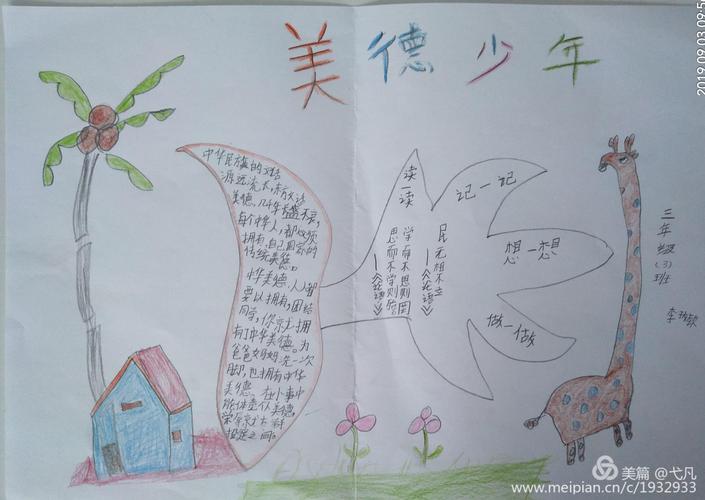 美德少年
中华民族的
源远流长,
美德,几千年盛不衰,
每个中华人,都必须
拥有自己国家的
传统美德。
中华美德,人人都
要以拥有,团结
同学,你就拥
有了中华美德。为
爸爸妈妈洗一次
脚,也拥有中华
美德。在小事中
美德,
读一读
记一记
想一想
做一做
学而不思则罔
思而不学则殆。
——《论语》
民无信不立
——《论语》
三年级(3)班
李
2019.09.03 09:5
美篇 @弋凡
www.meipian.cn/c/1932933